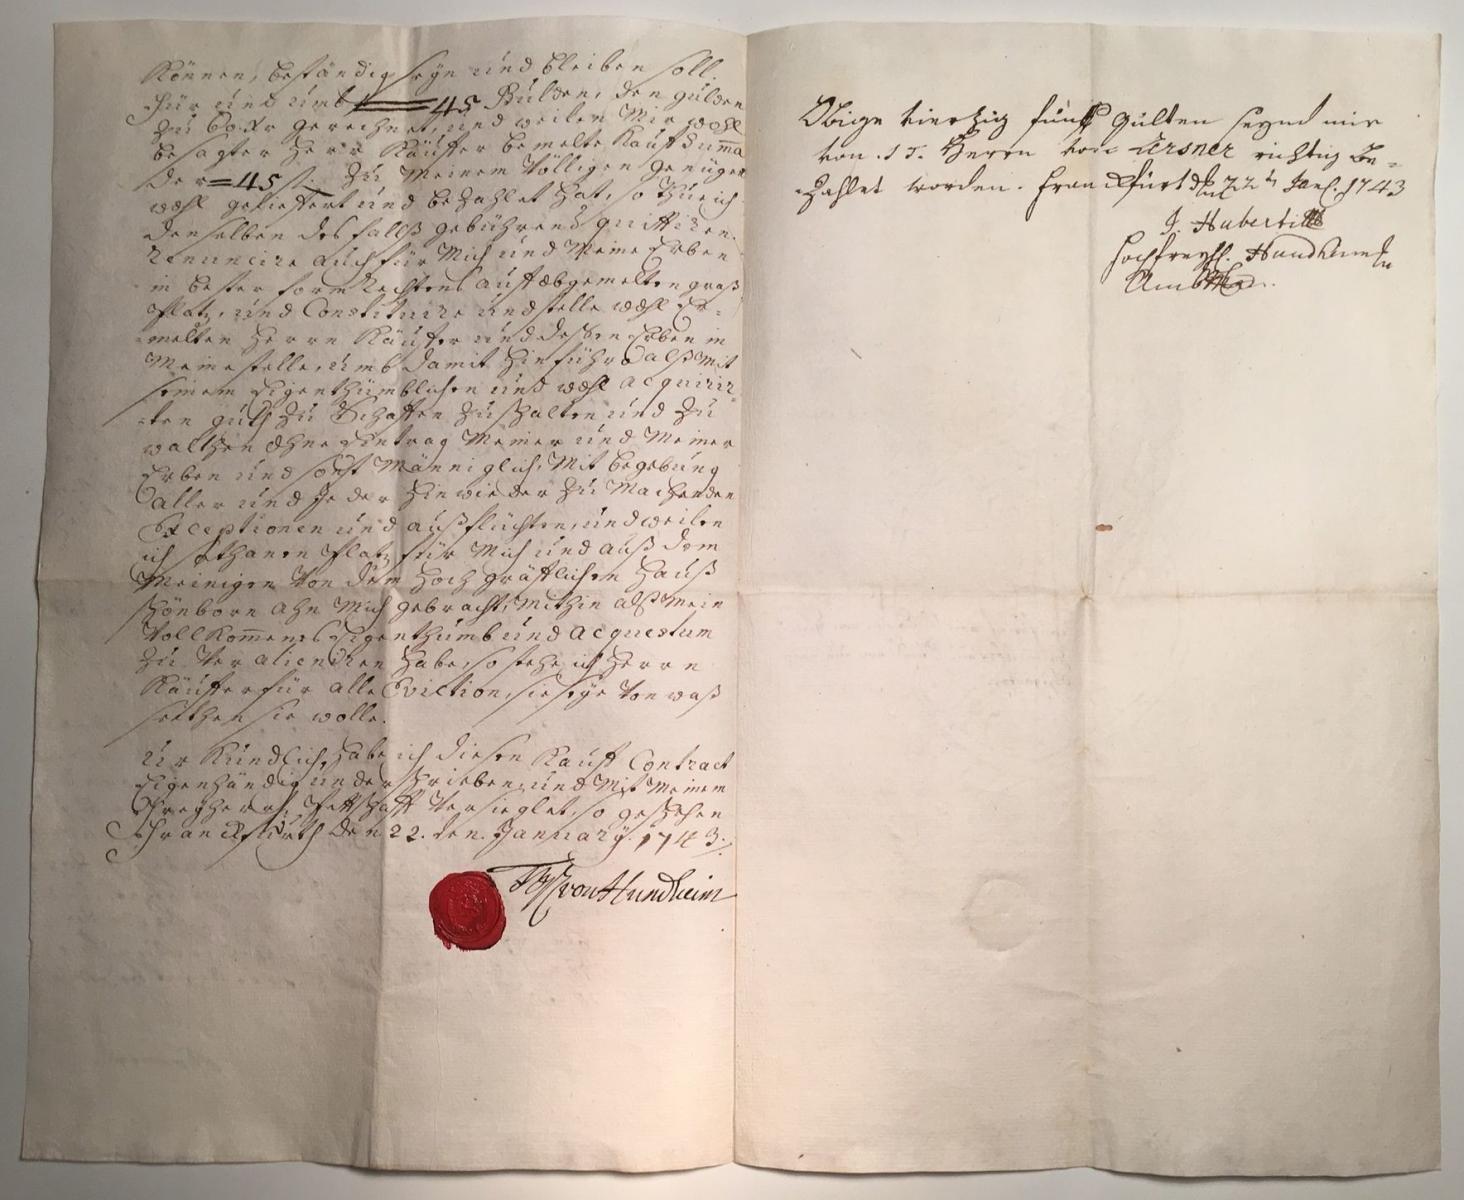 Können, beständig seyn und bleiben soll.
Für und umb 45 Gulden, den gulden
zu 60 Xr gerechnet, und weilen Mir wohl
besagter Herr Käuffer bemelte Kauff Suma
der 45 fl. zu meinem Völligen genügen
wohl geliefert und bezahlet hat, so thue ich
denselben des falls gebührend quittiren
renuncire auch für Mich und Meine Erben
in bester form Rechtens auff obgemelten graß
Platz, und Constituire und stelle wohl Er-
melten Herrn Käuffer und dessen Erben in
Meine stelle, umb damit hinführo alß Mit
seinem Eigenthümblichen und wohl acquirir-
ten guth zu Schaffen zu Schalten und zu
walthen ohne Eintrag Meiner und Meiner
Erben und sonst Männiglich, Mit begebung
aller und Jeder hinwieder zu Machenden
Exceptionen und außflüchten, und weilen
ich sothanen Platz für Mich und auß dem
Meinigen Von dem Hoch gräfflichen Hauß
Schönborn ahn Mich gebracht, Mithin alß Mein
Vollkomenes Eigenthumb und acquestum
zu Veralieniren habe, so stehe ich Herrn
Käuffer für alle Eviction, sie seye Von waß
sie wolle.
Urkundlich habe ich diesen Kauff Contract
Eigenhändig underschrieben, und Mit Meinem
Freyherrl. Pettschafft Versieglet, so geschehen
Franckfurth den 22. ten January. 1743.
von Hundheim
Obige vierzig fünff gulten seynd mir
von Herrn von Lersner richtig be-
zahlet worden. Franckfurt d 22t Jan. 1743
J. Huberti
Hochfreyhl. Hundheim